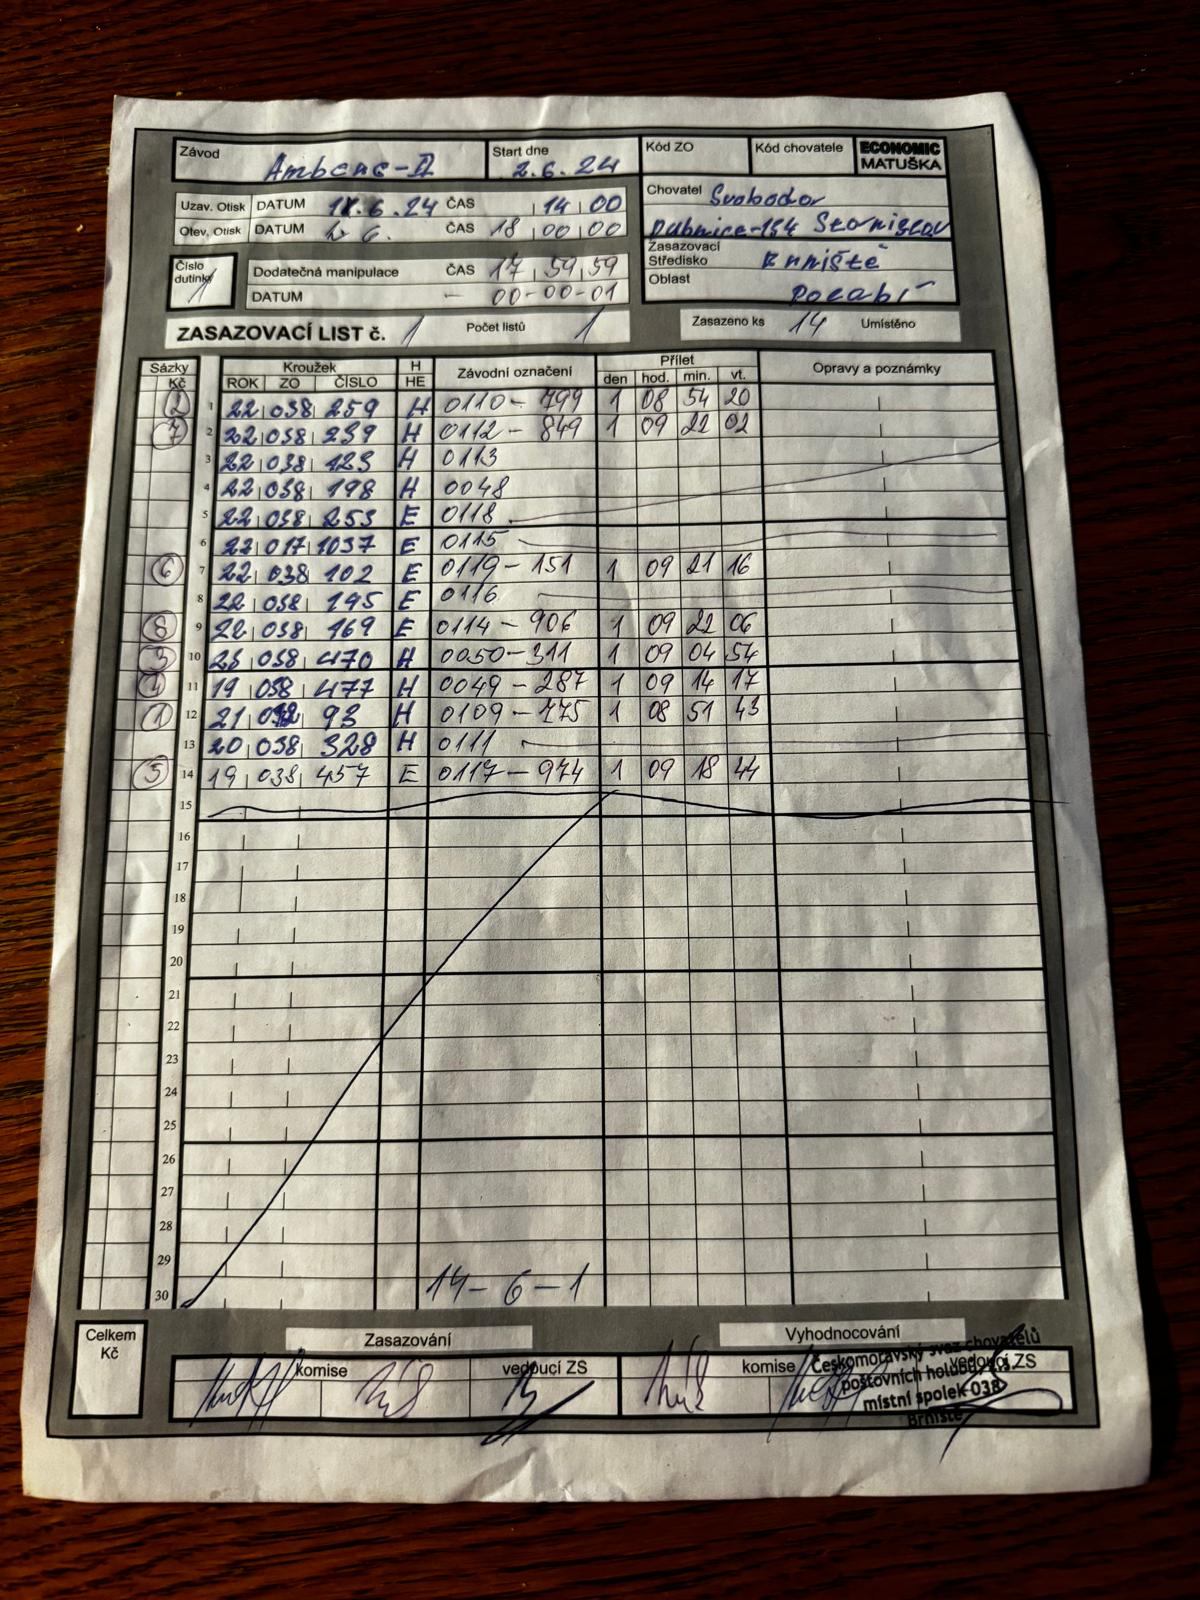 Závod Ambenc-II Start dne 2.6.24 Kód ZO Kód chovatele ECONOMIC MATUŠKA
Uzav. Otisk DATUM 1.6.24 ČAS 14 00
Otev. Otisk DATUM 2.6. ČAS 18 00 00
Chovatel Svoboda
Dubnice-154 Stanislav
Zasazovací Středisko Brniště
Oblast Polabí
Číslo dutinky 1
Dodatečná manipulace ČAS 17 59 59
DATUM - 00-00-01
ZASAZOVACÍ LIST č. 1 Počet listů 1 Zasazeno ks 14 Umístěno
Sázky Kč Kroužek H HE Závodní označení Přílet Opravy a poznámky
ROK ZO ČÍSLO den hod. min. vt.
2 1 22 038 259 H 0110-799 1 08 54 20
7 2 22 038 239 H 0112-849 1 09 22 02
3 22 038 423 H 0113
4 22 038 198 H 0048
5 22 038 253 E 0118
6 22 017 1037 E 0115
6 7 22 038 102 E 0119-151 1 09 21 16
8 22 038 145 E 0116
8 9 22 038 169 E 0114-906 1 09 22 06
3 10 23 038 470 H 0050-311 1 09 04 54
4 11 19 038 477 H 0049-287 1 09 14 17
1 12 21 93 H 0109-775 1 08 51 43
13 20 038 328 H 0111
5 14 19 038 457 E 0117-974 1 09 18 44
15
16
17
18
19
20
21
22
23
24
25
26
27
28
29
30 14-6-1
Celkem Kč
Zasazování Vyhodnocování
komise vedoucí ZS komise vedoucí ZS
Českomoravský svaz chovatelů
poštovních holubů z.s.
místní spolek 038
Brniště